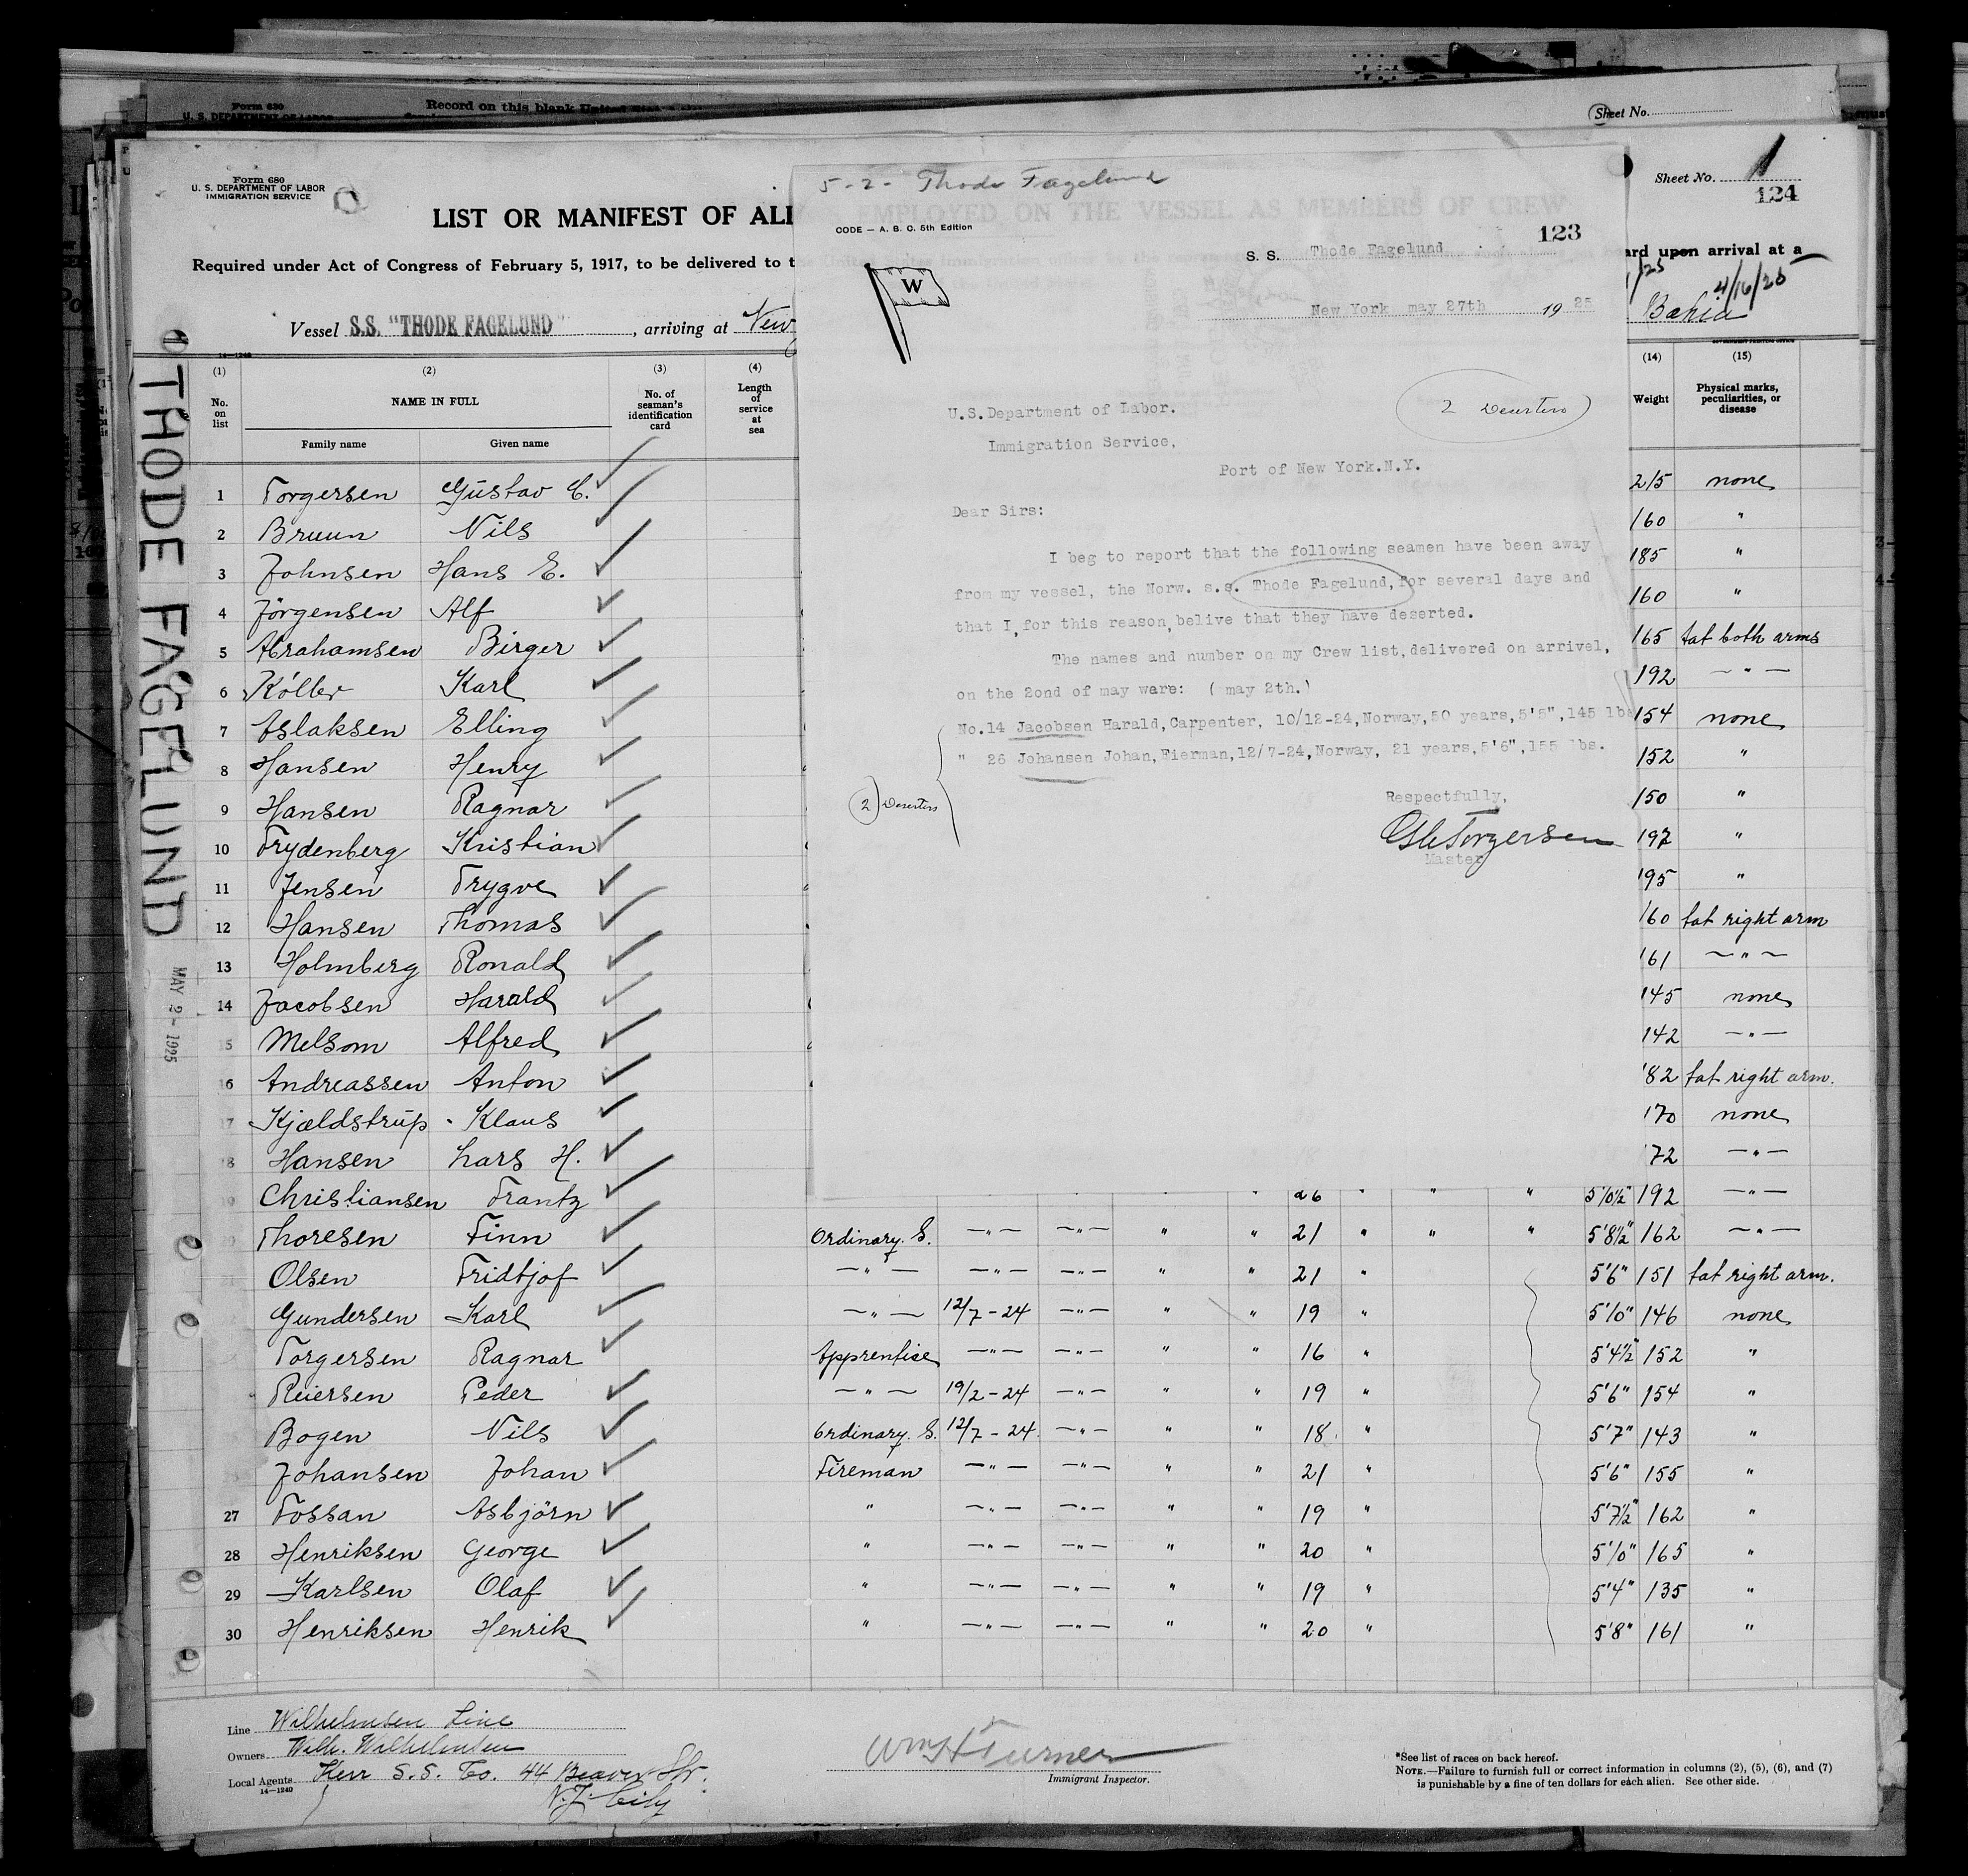 Form 630
U. S. DEPARTMENT OF LABOR
Record on this blank United
Sheet No.
Form 680
U. S. DEPARTMENT OF LABOR
IMMIGRATION SERVICE
Sheet No. 1
124
LIST OR MANIFEST OF ALI
EMPLOYED ON THE VESSEL AS MEMBERS OF CREW
Required under Act of Congress of February 5, 1917, to be delivered to t
ard upon arrival at a
Vessel S.S. "THODE FAGELUND", arriving at New
4/16/25
Bahia
THODE FAGELUND
MAY 2- 1925
14—1240
(1) (2) (3) (4) (14) (15)
No. on list
NAME IN FULL
Family name Given name
No. of seaman's identification card
Length of service at sea
Weight
Physical marks, peculiarities, or disease
5-2- Thode Fagelund
CODE — A. B. C. 5th Edition
123
W
S. S. Thode Fagelund
New York may 27th 19 25
2 Deserters
U.S.Department of Labor.
Immigration Service,
Port of New York.N.Y.
Dear Sirs:
I beg to report that the following seamen have been away
from my vessel, the Norw. s.s. Thode Fagelund, for several days and
that I, for this reason, belive that they have deserted.
The names and number on my Crew list, delivered on arrivel,
on the 2ond of may ware: ( may 2th.)
No.14 Jacobsen Harald, Carpenter, 10/12-24, Norway, 50 years, 5'5", 145 lbs
" 26 Johansen Johan, Fierman, 12/7-24, Norway, 21 years, 5'6", 155 lbs.
2 Deserters
Respectfully,
Torgersen
Master
1 Torgersen Gustav C. 215 none
2 Bruun Nils 160 "
3 Johnsen Hans E. 185 "
4 Jörgensen Alf 160 "
5 Abrahamsen Birger 165 tat both arms
6 Köller Karl 192 — " —
7 Aslaksen Elling 154 none
8 Hansen Henry 152 "
9 Hansen Ragnar 150 "
10 Frydenberg Kristian 197 "
11 Jensen Trygve 195 "
12 Hansen Thomas 160 tat right arm
13 Holmberg Ronald 161 — " —
14 Jacobsen Harald 145 none
15 Melsom Alfred 142 — " —
16 Andreassen Anton 82 tat right arm.
17 Kjældstrup Klaus 170 none
18 Hansen Lars H. 72 — " —
19 Christiansen Frantz 26 " " " 5'10½" 192 — " —
20 Thoresen Finn Ordinary. S. — " — — " — " " 21 " " " 5'8½" 162 — " —
21 Olsen Fridtjof — " — — " — — " — " " 21 " 5'6" 151 tat right arm.
Gundersen Karl — " — 12/7-24 — " — " " 19 " 5'10" 146 none
Torgersen Ragnar Apprentise — " — — " — " " 16 " 5'4½" 152 "
Reiersen Peder — " — 19/2-24 — " — " " 19 " 5'6" 154 "
Bogen Nils Ordinary. S. 12/7-24. — " — " " 18. " 5'7" 143 "
Johansen Johan Fireman — " — — " — " " 21 " 5'6" 155 "
27 Fossan Asbjörn " — " — — " — " " 19 " 5'7½" 162 "
28 Henriksen George " — " — — " — " " 20 " 5'10" 165 "
29 Karlsen Olaf " — " — — " — " " 19 " 5'4" 135 "
30 Henriksen Henrik " — " — — " — " " 20 " 5'8" 161 "
Line Wilhelmsen Line
Owners Wilh. Wilhelmsen
Local Agents Kerr S.S. Co. 44 Beaver Str.
14—1240
N.Y. City
Wm H Turner
Immigrant Inspector.
*See list of races on back hereof.
NOTE.—Failure to furnish full or correct information in columns (2), (5), (6), and (7)
is punishable by a fine of ten dollars for each alien. See other side.